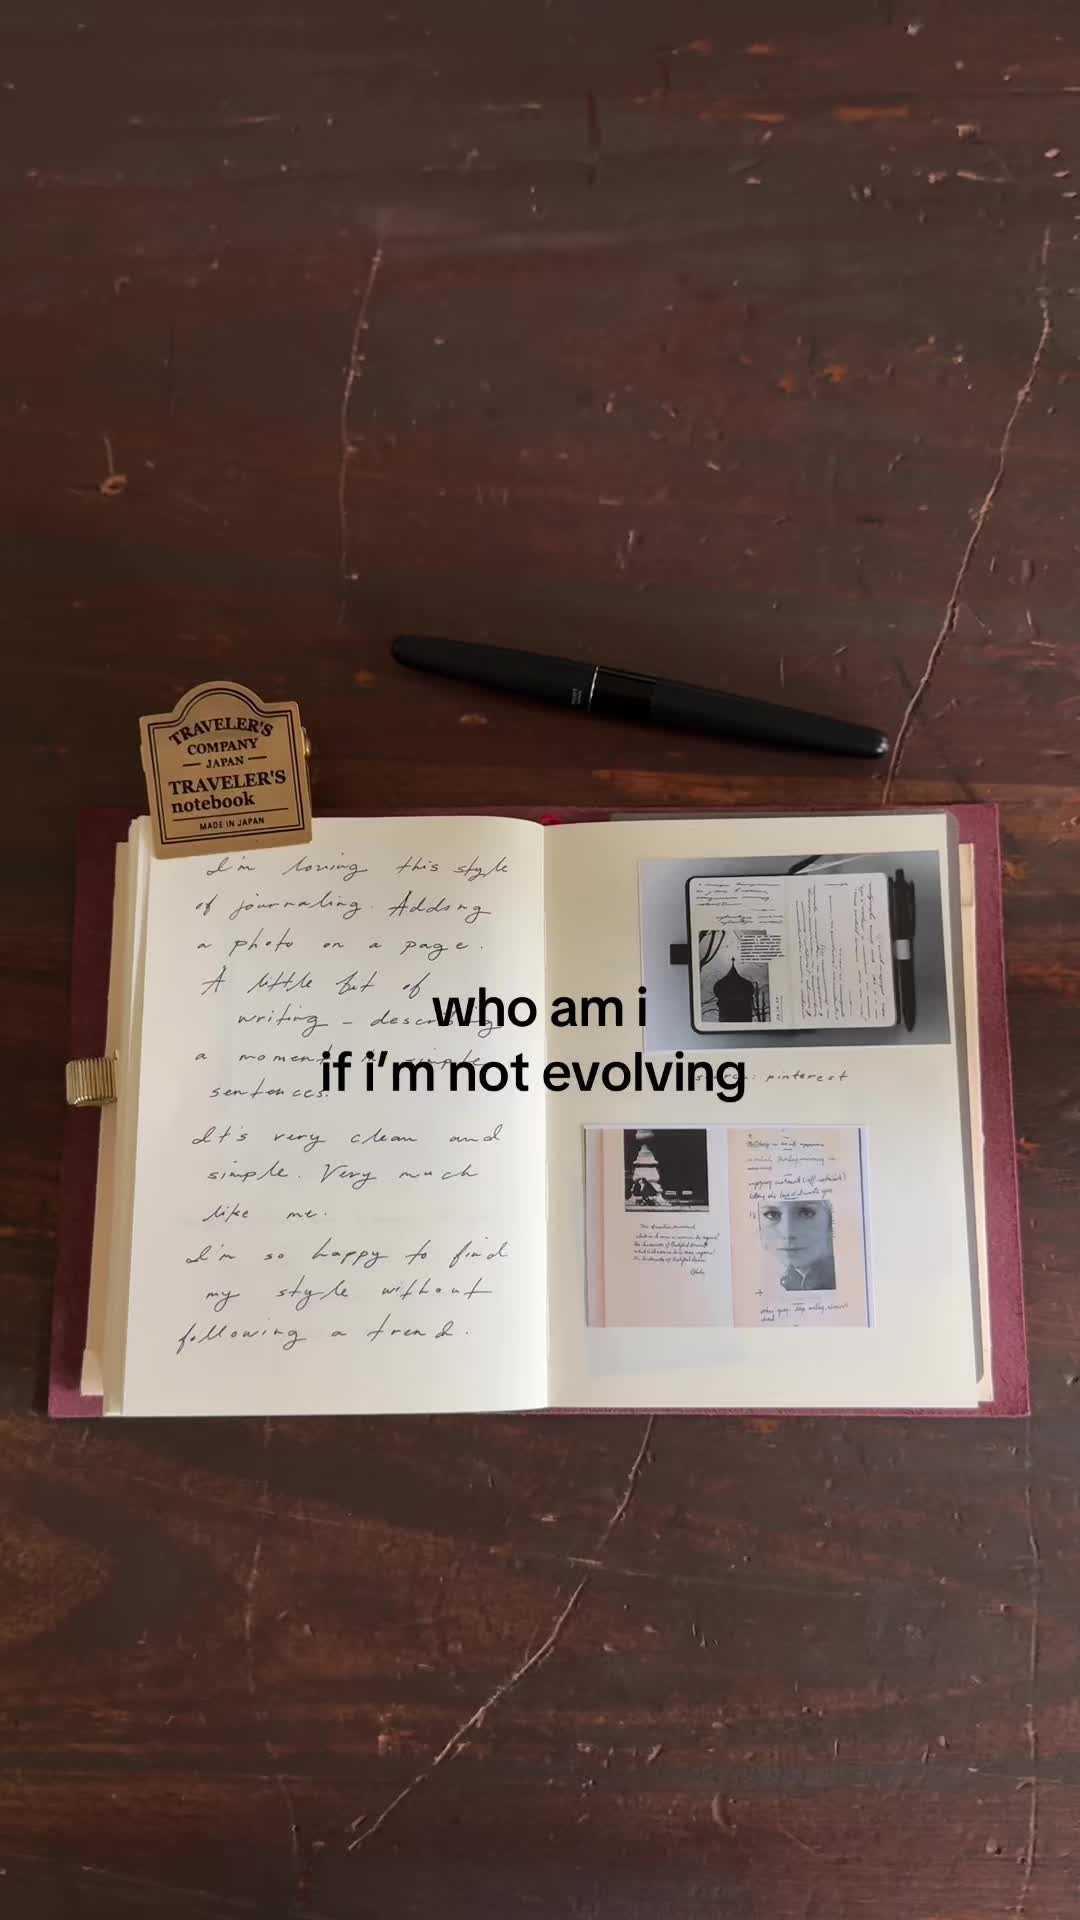 TRAVELER'S
COMPANY
JAPAN
TRAVELER'S
notebook
MADE IN JAPAN
I'm loving this style
of journaling. Adding
a photo on a page.
A little bit of
writing – describing
a moment in simple
sentences.
It's very clean and
simple. Very much
like me.
I'm so happy to find
my style without
following a trend.
who am i
if i'm not evolving
source: pinterest